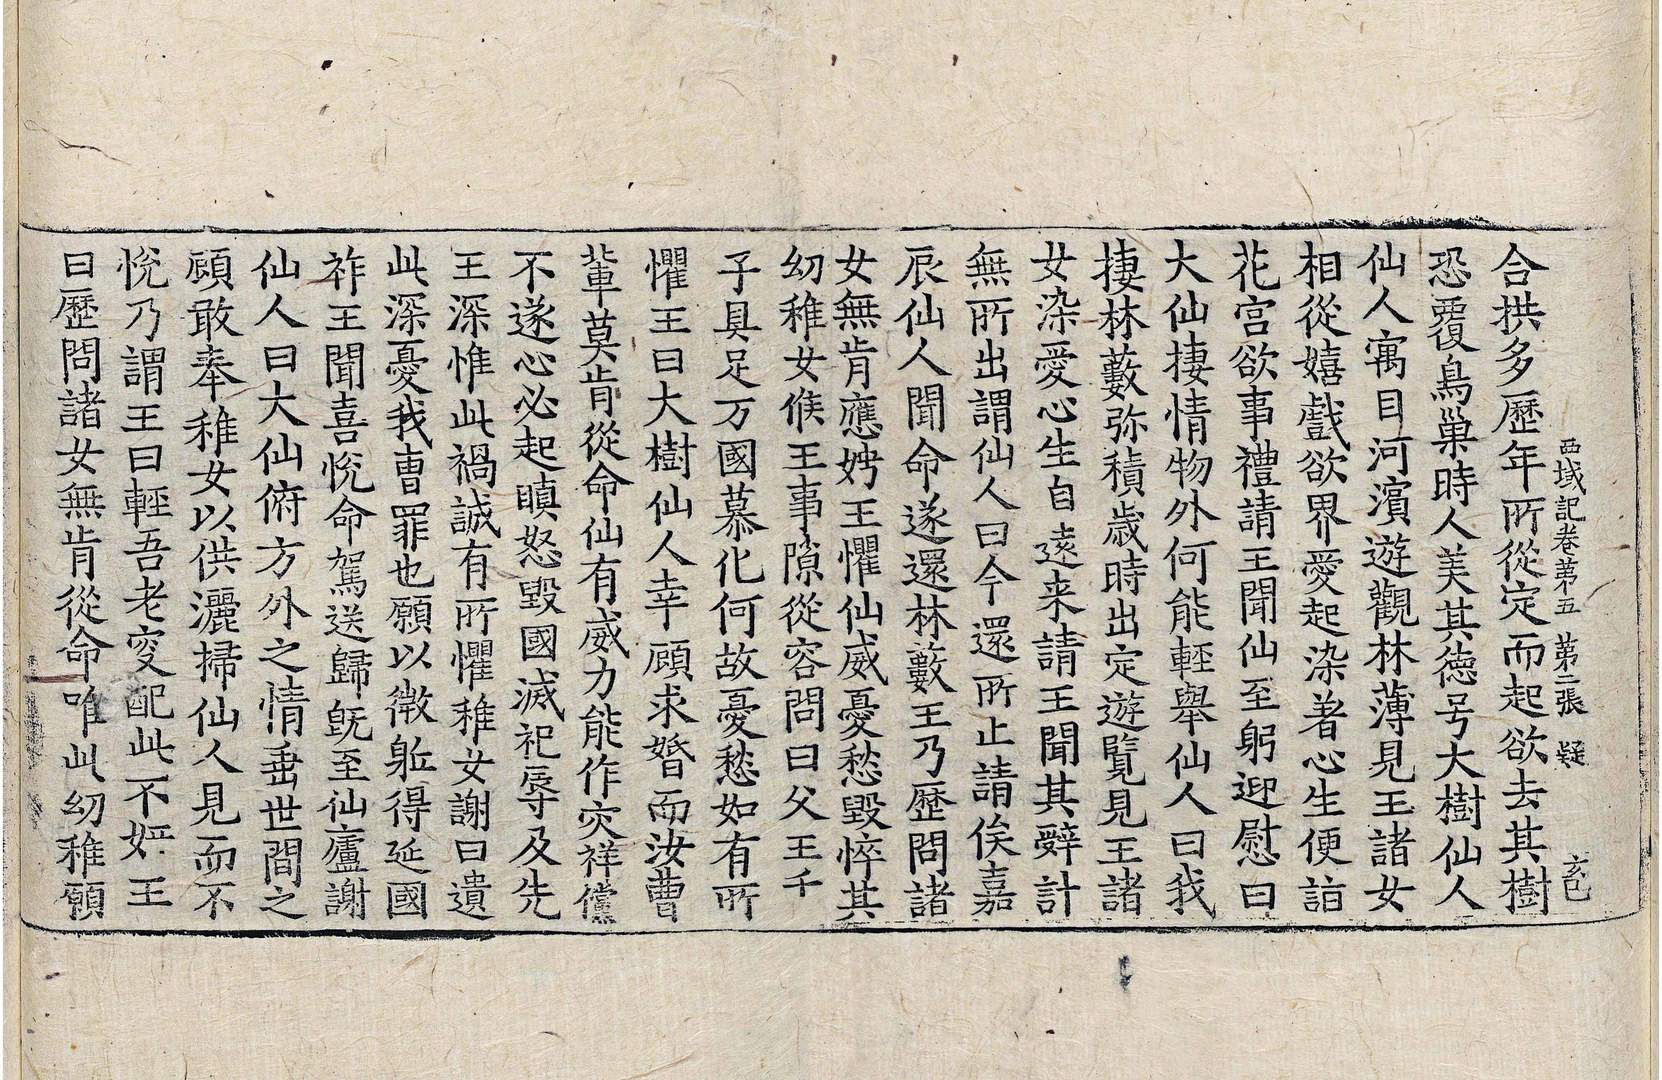 西域記卷第五 第二張 疑 玄巳
合拱多歷年所從定而起欲去其樹
恐覆鳥巢時人美其德号大樹仙人
仙人寓目河濱遊觀林薄見王諸女
相從嬉戲欲界愛起染著心生便詣
花宮欲事禮請王聞仙至躬迎慰曰
大仙捿情物外何能輕舉仙人曰我
捿林藪弥積歲時出定遊覽見王諸
女染愛心生自遠来請王聞其辝計
無所出謂仙人曰今還所止請俟嘉
辰仙人聞命遂還林藪王乃歷問諸
女無肯應娉王懼仙威憂愁毀悴其
幼稚女候王事隙從容問曰父王千
子具足万國慕化何故憂愁如有所
懼王曰大樹仙人幸顧求婚而汝曹
輩莫肯從命仙有威力能作灾祥儻
不遂心必起瞋怒毀國滅祀辱及先
王深惟此禍誠有所懼稚女謝曰遺
此深憂我曹罪也願以微軀得延國
祚王聞喜悅命駕送歸既至仙廬謝
仙人曰大仙俯方外之情垂世間之
顧敢奉稚女以供灑掃仙人見而不
悅乃謂王曰輕吾老叟配此不妍王
曰歷問諸女無肯從命唯此幼稚願